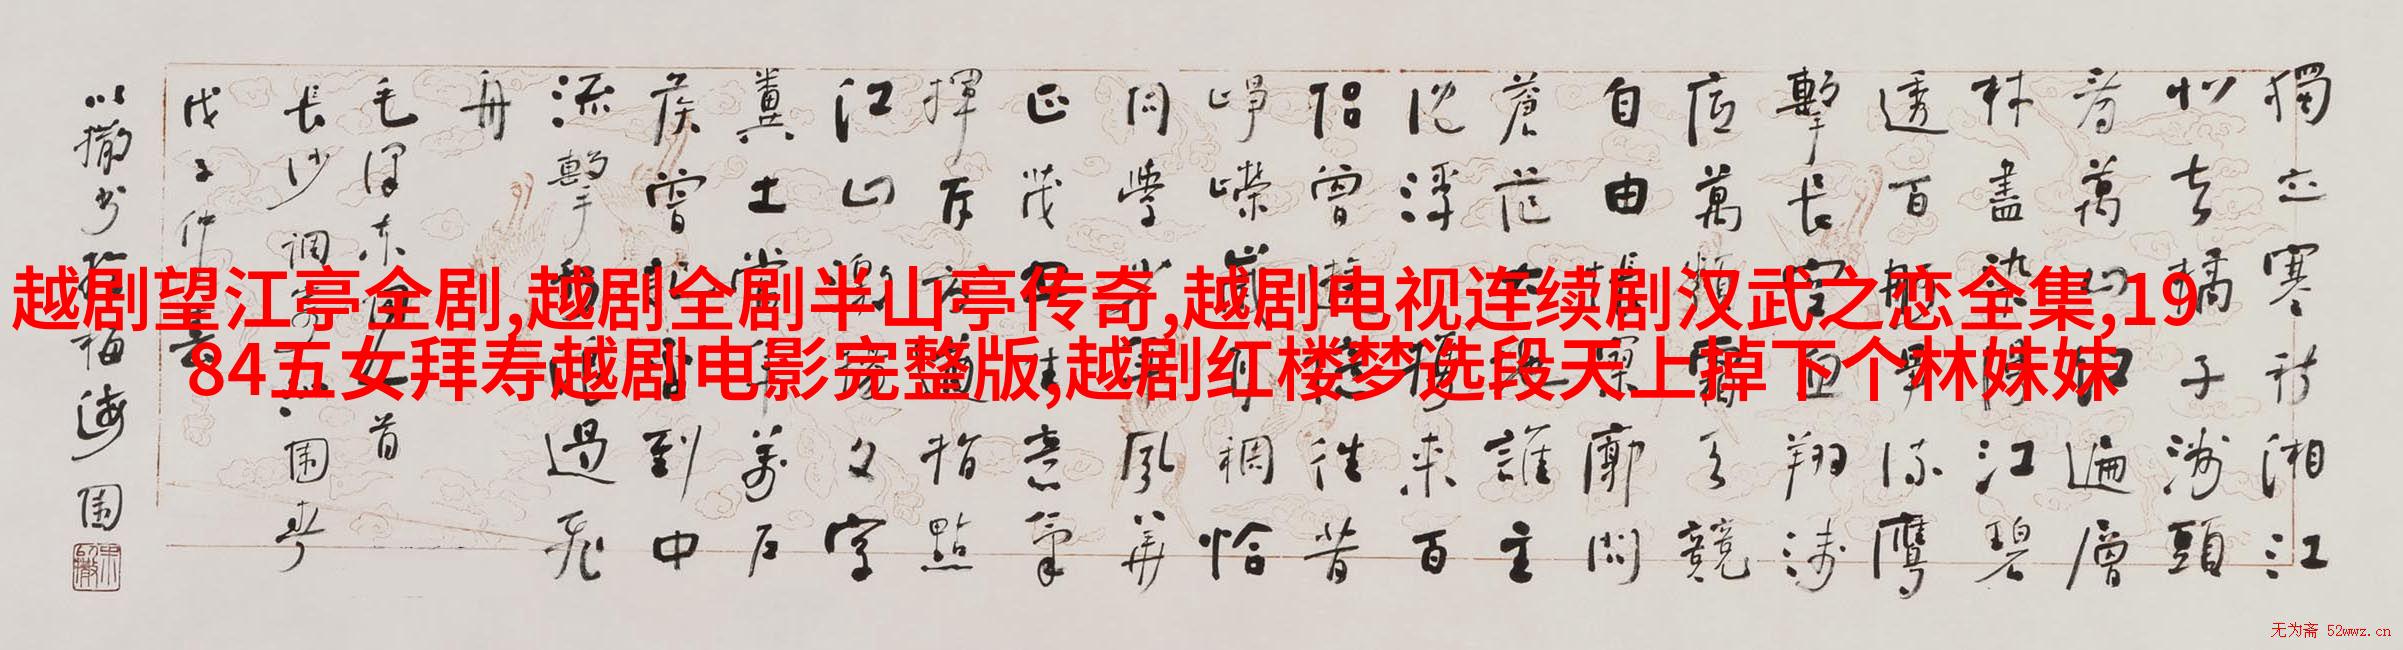 越剧望江亭全剧,越剧全剧半山亭传奇,越剧电视连续剧汉武之恋全集,19
84五女拜寿越剧电影完整版,越剧红楼梦选段天上掉下个林妹妹
獨立寒秋湘江
北去橘子洲頭
看萬山紅遍層
林盡染漫江碧
透百舸爭流鷹
擊長空魚翔淺
底萬類霜天競
自由悵寥廓問
蒼茫大地誰主
沉浮攜來百
侶曾遊憶往昔
崢嶸歲月稠恰
同學少年風華
正茂書生意氣
揮斥方遒指點
江山激揚文字
糞土當年萬戶
侯曾記否到中
流擊水浪遏飛
舟
毛澤東詞一首
長沙調寄沁園春
戊子仲春
以撒書於福海園
无为斋 52wwz.cn